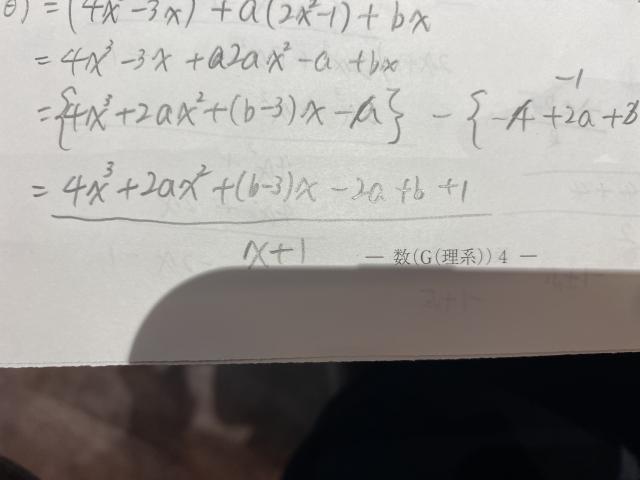 θ) = (4x³-3x) + a(2x²-1) + bx
= 4x³-3x + a2ax²-a+bx
= {4x³+2ax²+(b-3)x-a} - {-4+2a+3
-1
= 4x³+2ax²+(b-3)x-2a+b+1
x+1
― 数(G(理系)) 4 ―